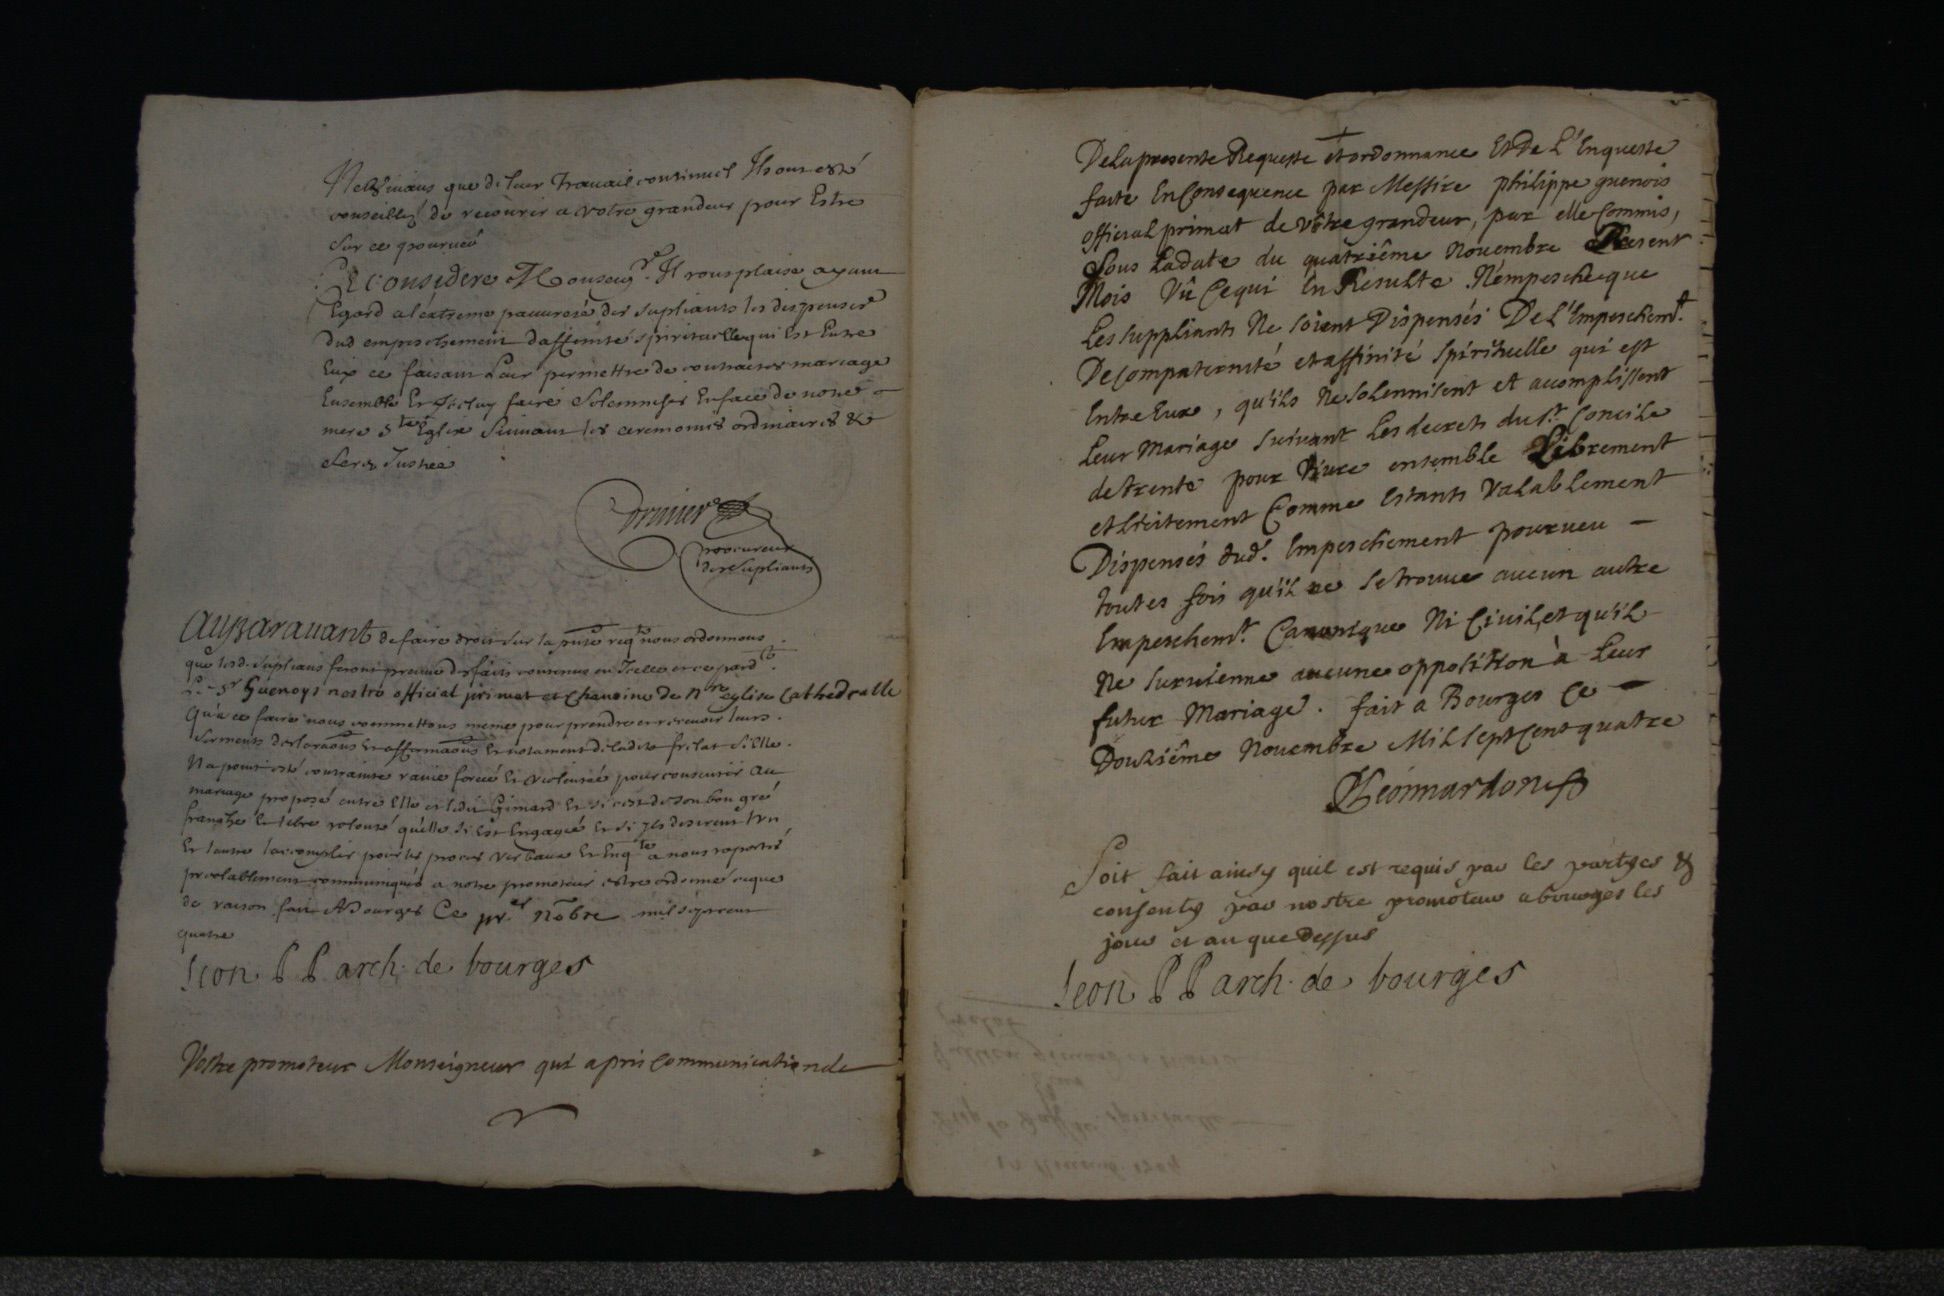 Ne vivans que de leur travail continuel Ils ont esté
conseillez de recourir a votre grandeur pour Estre
sur ce pourveu
Ce consideré Monseigr. Il vous plaise ayant
Egard a l'extreme pauvreté des supliants les dispenser
dud empeschement daffinité spirituelle qui Est Entre
Eux ce faisant Leur permettre de contracter mariage
Ensemble Et Iceluy faire solemniser En face de notre
mere ste Eglise suivant les ceremonies ordinaires &
ferez Justice
procureur
des supliants
Auparavant de faire droit sur la pnte reqte nous ordonnons
que lesd. supliants feront preuve des faits contenus en Icelle et ce pardt
Le Sr Guenoys nostre official primat et chanoine de nre eglise Cathedralle
Qu'a ce faire nous commettons meme pour prendre et recevoir leurs
serments declaraons Et affirmaons Et notament de ladite frelat si elle
Na point esté contrainte ravie forcée Et violentée pour consentir au
mariage proposé entre Elle et ledit Gimard Et si c'est de son bon gré
franche Et libre volonté qu'elle s'i est Engagée Et si Ils desirent l'un
Et l'autre l'accomplir pour les proces verbaux Et Enqte a nous raportés
prealablement communiqués a notre promoteur estre ordonné ce que
de raison fait A Bourges Ce pr.er nobre mil sept cent
quatre
Leon P P arch. de bourges
Vostre promoteur Monseigneur qui apris Communication de
De la presente Requeste et ordonnance Et de L'Enqueste
faite En Consequence par Messire philippe guenois
Official primat de vôtre grandeur, par elle Commis,
Sous La date du quatriême Novembre Present
Mois Vû Ce qui En Resulte N'empesche que
Les suppliants Ne soient Dispensés De L'Empeschemt.
De Compaternité et affinité spirituelle qui est
Entre Eux, qu'ils Ne solennisent et accomplissent
Leur Mariage suivant Les decrets du st. Concile
de trente pour Vivre ensemble Librement
et Licitement Comme Estants Valablement
Dispensés dud. Empeschement pourveu —
toutes fois qu'il ne se trouve aucun autre
Empeschemt. Canonique Ni Civil, et qu'il
Ne survienne aucune opposition à Leur
futur Mariage. fait a Bourges Ce —
Douziême Novembre Mil sept Cent quatre
Soit fait ainsy quil est requis par les partyes &
consenty par nostre promoteur a bourges les
jour et an que dessus
Leon P P arch. de bourges